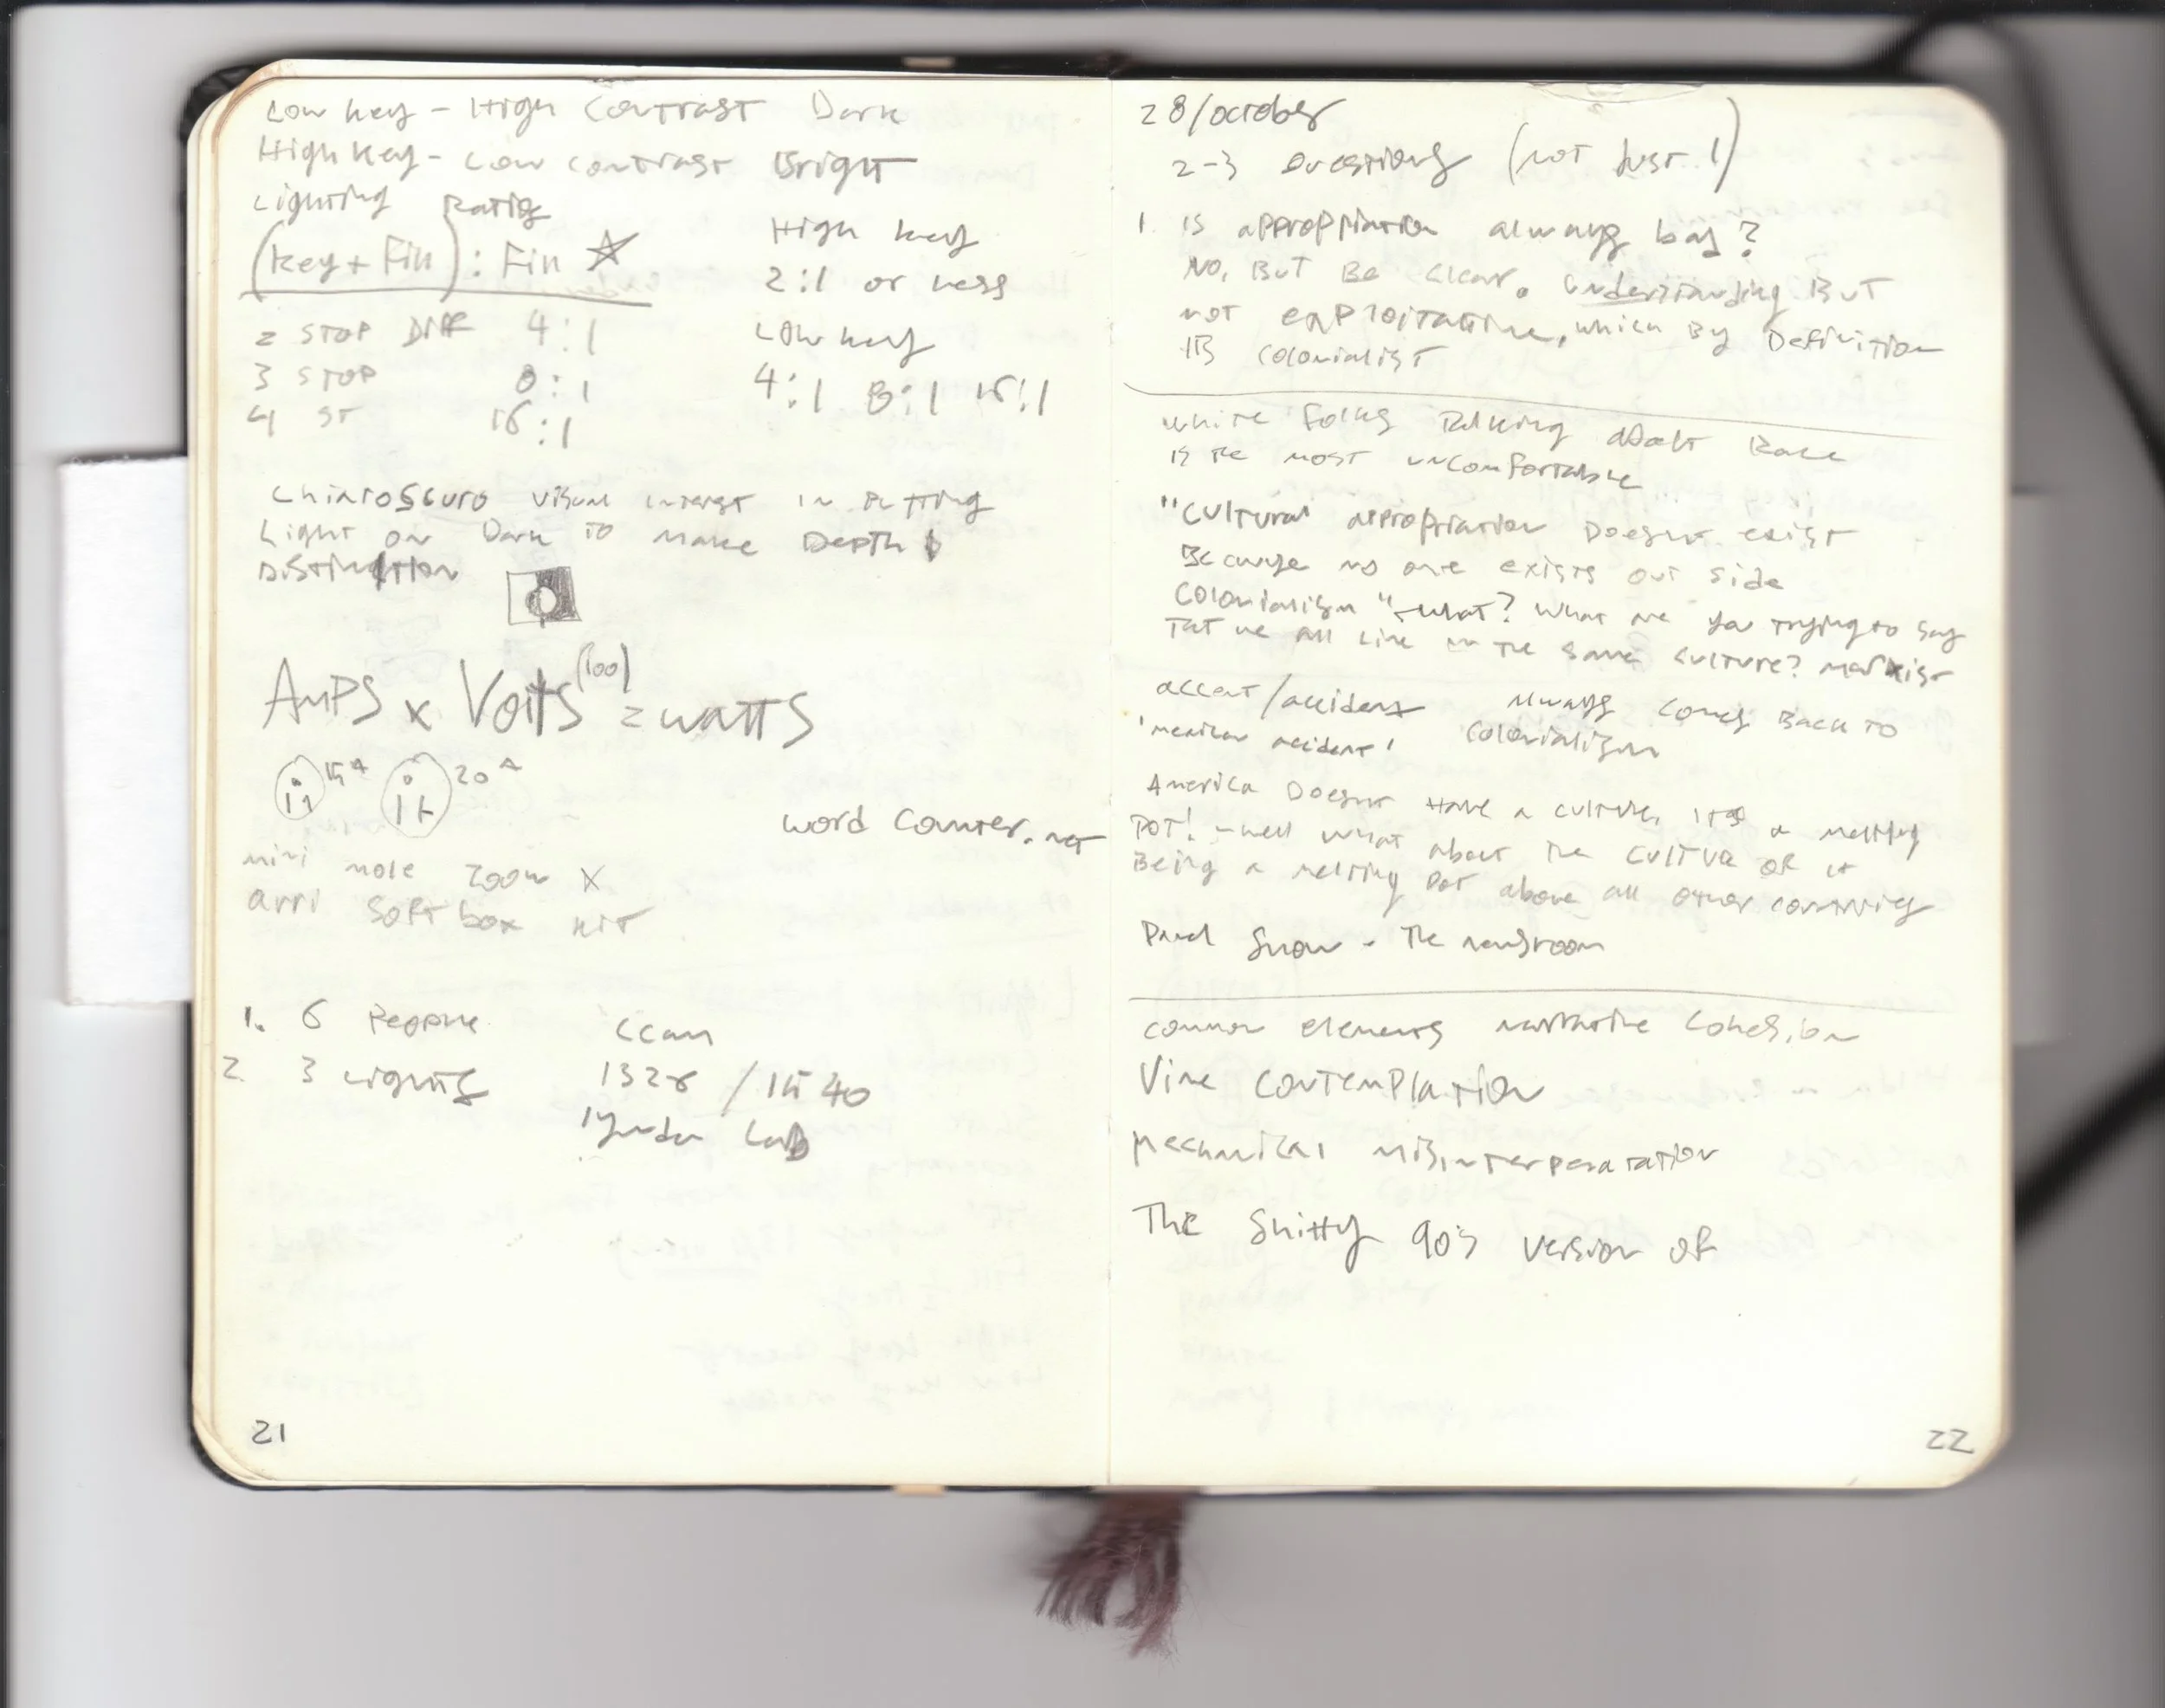 Low key - High Contrast Dark
High Key - Low contrast Bright
Lighting Ratios
(key + Fill) : Fill
2 STOP DIFF 4:1
3 STOP 8:1
4 ST 16:1
High key
2:1 or less
Low key
4:1 8:1 16:1
Chiaroscuro visual interest in putting
Light on Dark to make Depth &
Distinction
AMPS x Volts (100) = watts
15A 20A
mini mole zoom X
arri soft box kit
word counter.net
1. 6 People
2. 3 Lights
CCam
1328 / 1540
Lab
21
28/october
2-3 Questions (not just 1)
1. is appropriation always bad?
No, But Be clear. Understanding But
not exploitative, which By Definition
is colonialist
white folks talking about Race
is the most uncomfortable
"Cultural appropriation Doesn't exist
Because no one exists outside
Colonialism" - what? What are you trying to say
Tat we all live in the same culture? Marxist
accent/accident Always comes Back to
'mexican accident' Colonialism
America Doesn't Have a culture, it's a melting
POT! - well what about the culture of it
Being a melting pot above all other countries
Snow - The newsroom
common elements narrative cohesion
Vine Contemplation
Mechanical misinterperatation
The Shitty 90's version of
22